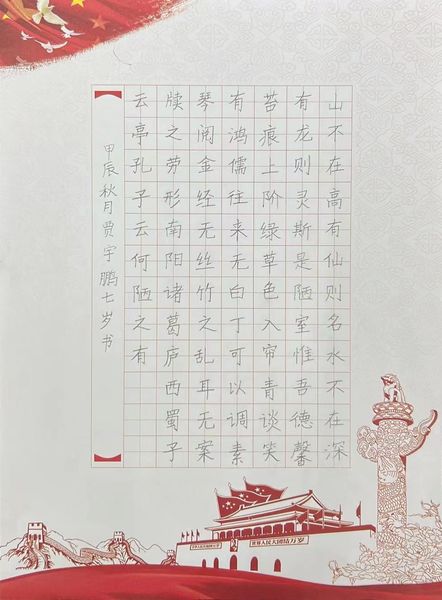 山不在高有仙则名水不在深
有龙则灵斯是陋室惟吾德馨
苔痕上阶绿草色入帘青谈笑
有鸿儒往来无白丁可以调素
琴阅金经无丝竹之乱耳无案
牍之劳形南阳诸葛庐西蜀子
云亭孔子云何陋之有
甲辰秋月贾宇鹏七岁书
中华人民共和国万岁
世界人民大团结万岁